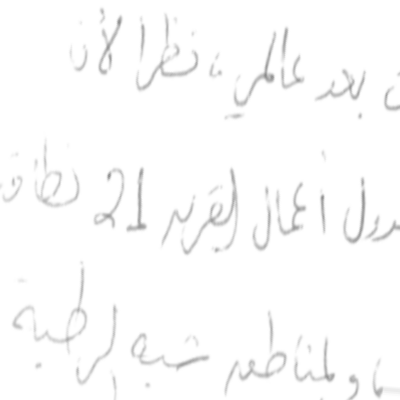 بعد عالمي، نظرا لأن
جدول أعمال القرن 21 نطاق
والمناطق شبه الرطبة